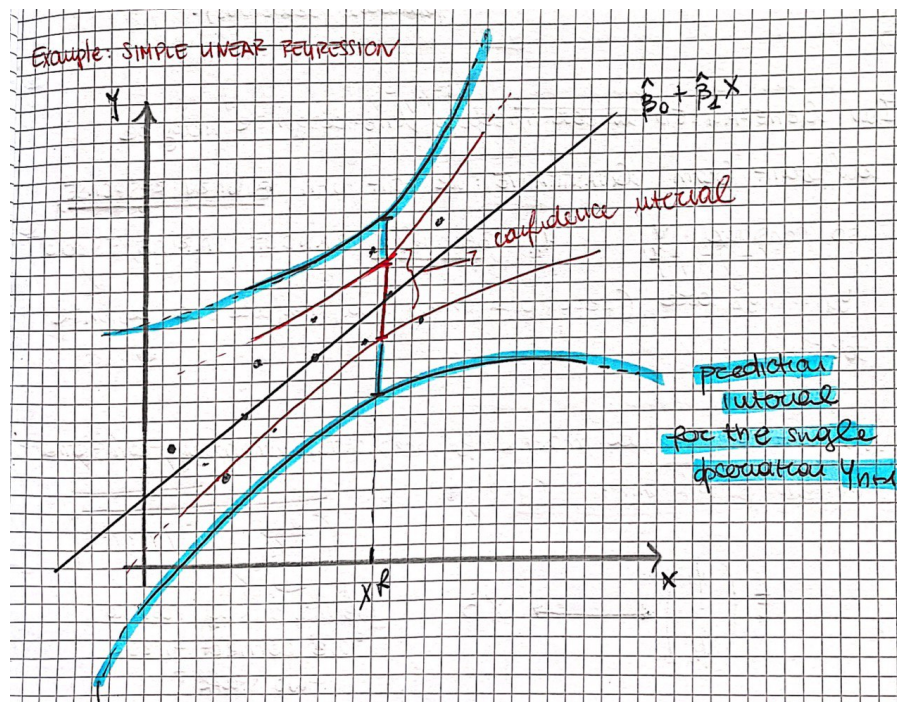 Example: SIMPLE LINEAR REGRESSION
Y
β̂₀ + β̂₁ X
confidence interval
prediction
interval
for the single
observation Yₙ₊₁
X